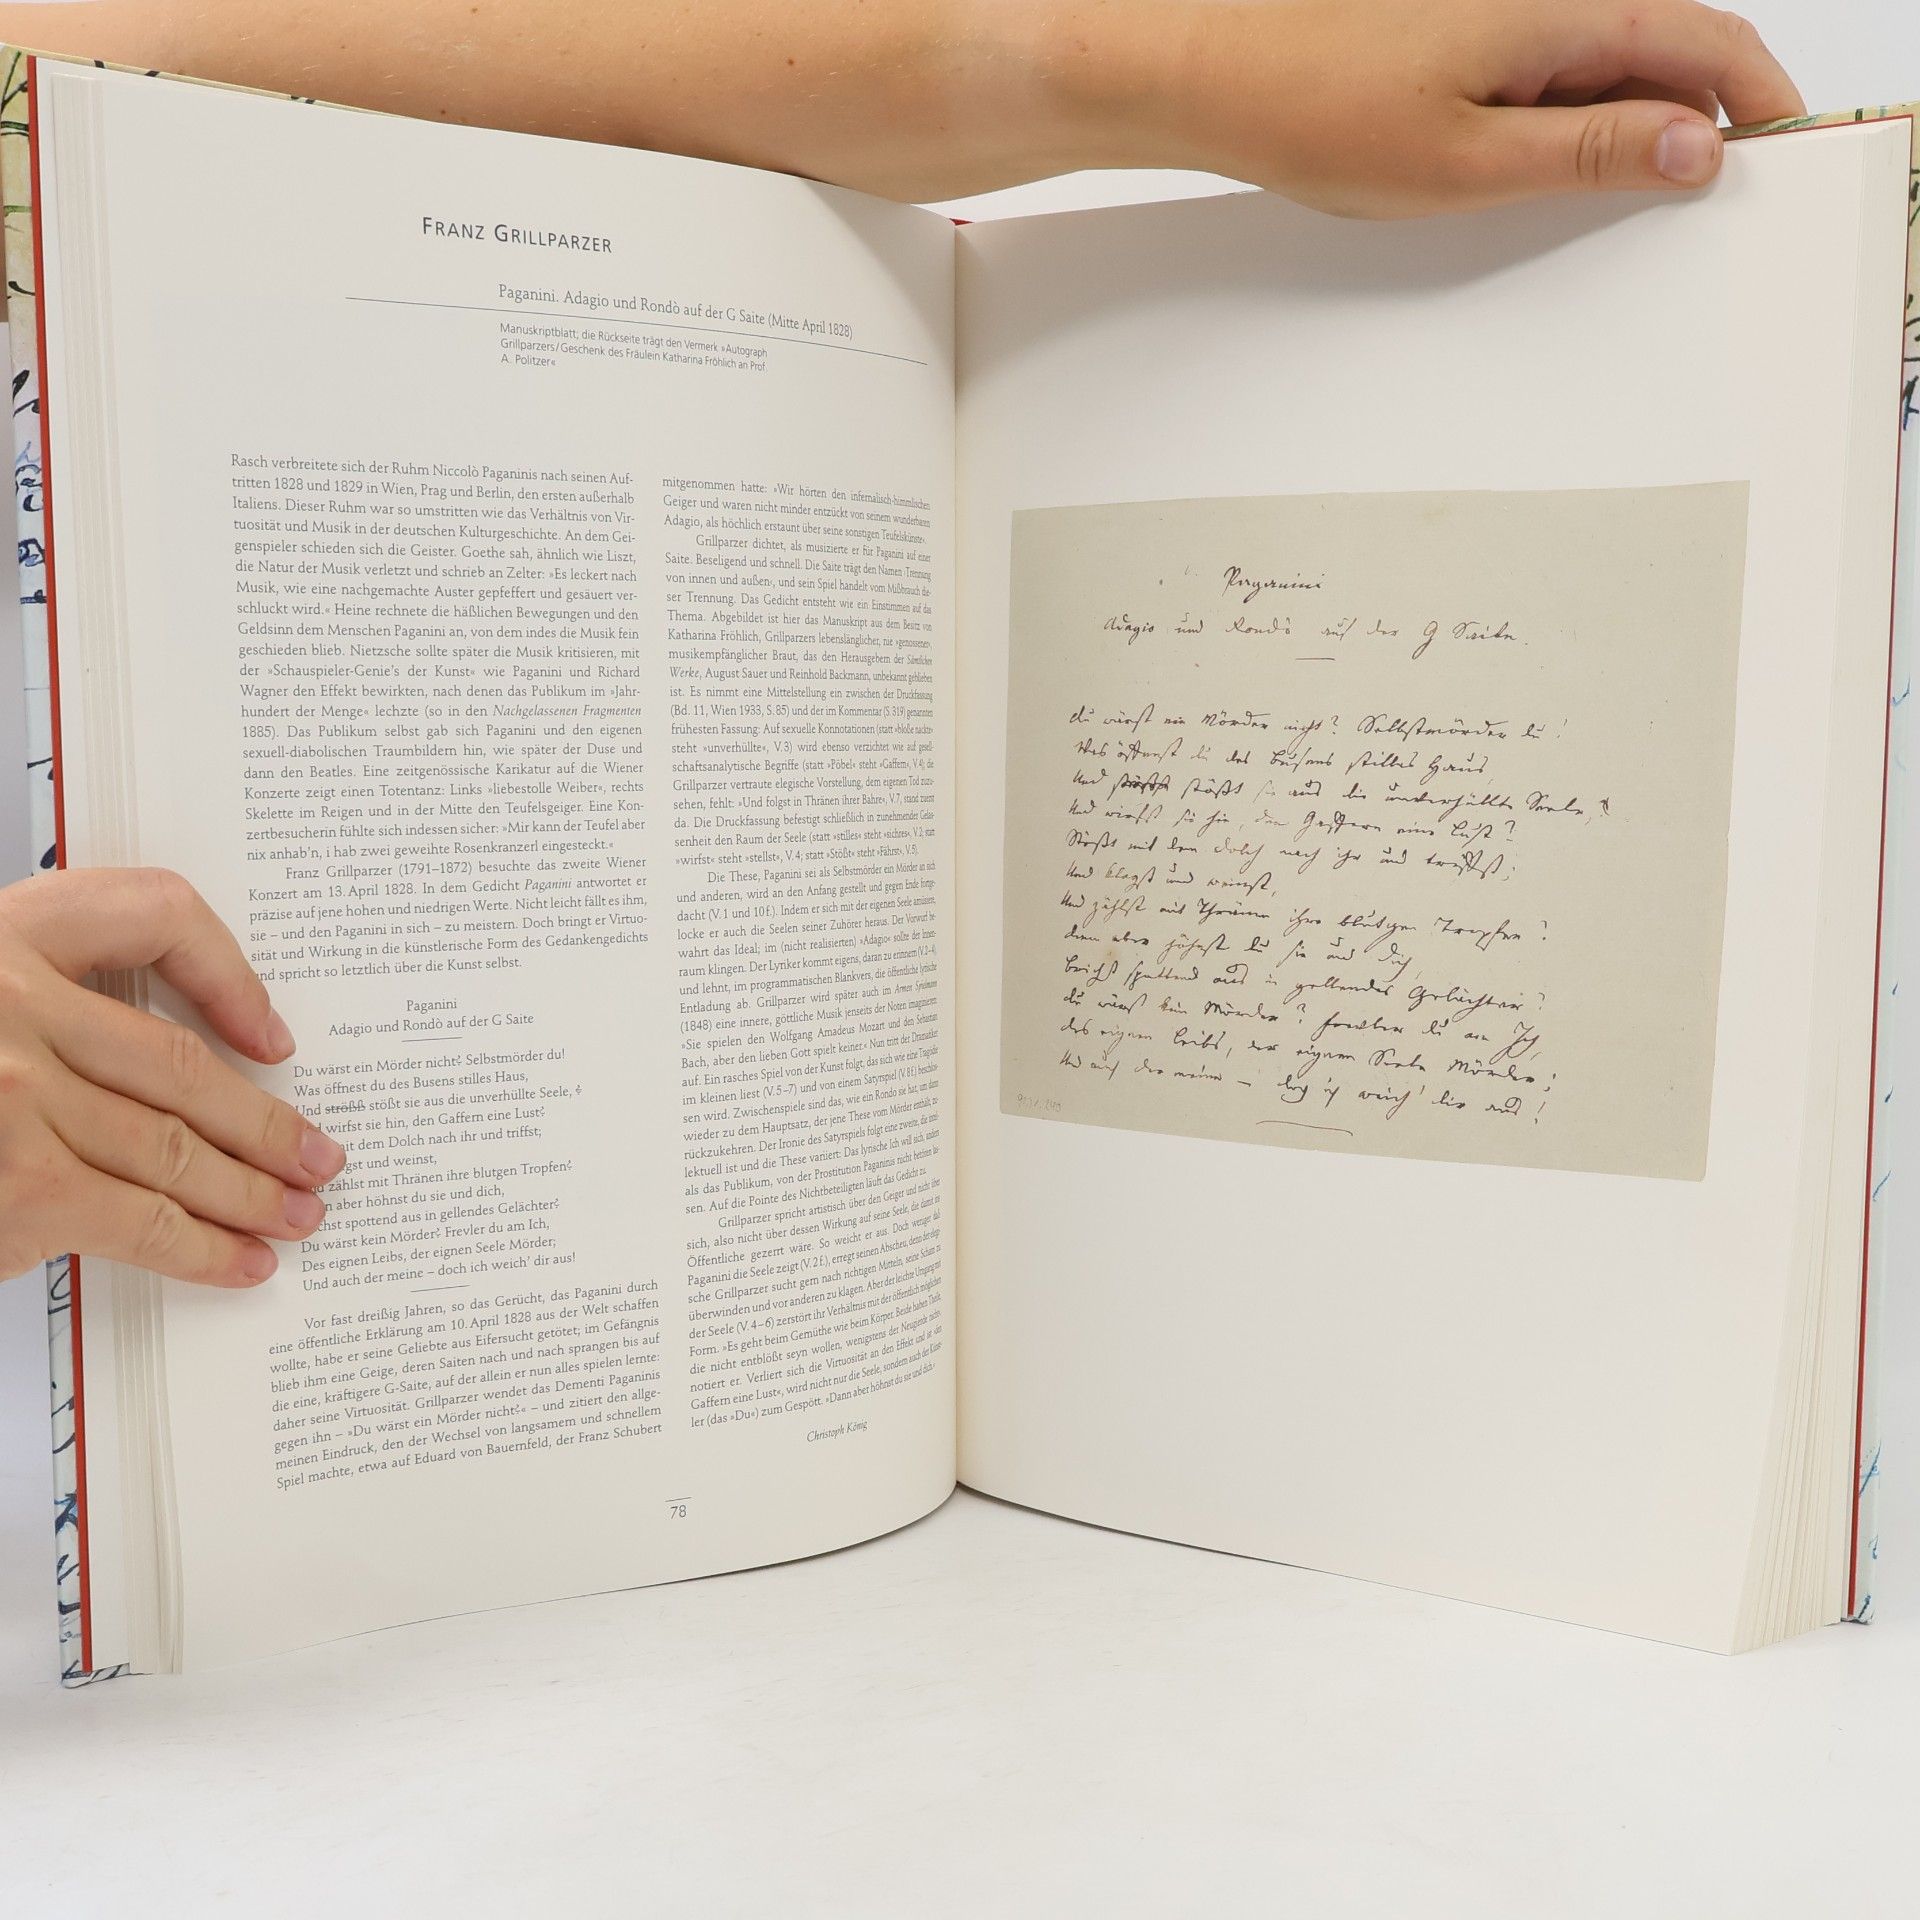 FRANZ GRILLPARZER
Paganini. Adagio und Rondò auf der G Saite (Mitte April 1828)
Manuskriptblatt; die Rückseite trägt den Vermerk »Autograph
Grillparzers/Geschenk des Fräulein Katharina Fröhlich an Prof.
A. Politzer«
Rasch verbreitete sich der Ruhm Niccolò Paganinis nach seinen Auf-
tritten 1828 und 1829 in Wien, Prag und Berlin, den ersten außerhalb
Italiens. Dieser Ruhm war so umstritten wie das Verhältnis von Vir-
tuosität und Musik in der deutschen Kulturgeschichte. An dem Gei-
genspieler schieden sich die Geister. Goethe sah, ähnlich wie Liszt,
die Natur der Musik verletzt und schrieb an Zelter: »Es leckert nach
Musik, wie eine nachgemachte Auster gepfeffert und gesäuert ver-
schluckt wird.« Heine rechnete die häßlichen Bewegungen und den
Geldsinn dem Menschen Paganini an, von dem indes die Musik fein
geschieden blieb. Nietzsche sollte später die Musik kritisieren, mit
der »Schauspieler-Genie's der Kunst« wie Paganini und Richard
Wagner den Effekt bewirkten, nach denen das Publikum im »Jahr-
hundert der Menge« lechzte (so in den Nachgelassenen Fragmenten
1885). Das Publikum selbst gab sich Paganini und den eigenen
sexuell-diabolischen Traumbildern hin, wie später der Duse und
dann den Beatles. Eine zeitgenössische Karikatur auf die Wiener
Konzerte zeigt einen Totentanz: Links »liebestolle Weiber«, rechts
Skelette im Reigen und in der Mitte den Teufelsgeiger. Eine Kon-
zertbesucherin fühlte sich indessen sicher: »Mir kann der Teufel aber
nix anhab'n, i hab zwei geweihte Rosenkranzerl eingesteckt.«
Franz Grillparzer (1791–1872) besuchte das zweite Wiener
Konzert am 13. April 1828. In dem Gedicht Paganini antwortet er
präzise auf jene hohen und niedrigen Werte. Nicht leicht fällt es ihm,
sie – und den Paganini in sich – zu meistern. Doch bringt er Virtuo-
sität und Wirkung in die künstlerische Form des Gedankengedichts
und spricht so letztlich über die Kunst selbst.
Paganini
Adagio und Rondò auf der G Saite
Du wärst ein Mörder nicht? Selbstmörder du!
Was öffnest du des Busens stilles Haus,
Und ströß stößt sie aus die unverhüllte Seele,
wirfst sie hin, den Gaffern eine Lust?
mit dem Dolch nach ihr und triffst;
gst und weinst,
zählst mit Thränen ihre blutgen Tropfen?
n aber höhnst du sie und dich,
chst spottend aus in gellendes Gelächter?
Du wärst kein Mörder? Frevler du am Ich,
Des eignen Leibs, der eignen Seele Mörder;
Und auch der meine – doch ich weich' dir aus!
Vor fast dreißig Jahren, so das Gerücht, das Paganini durch
eine öffentliche Erklärung am 10. April 1828 aus der Welt schaffen
wollte, habe er seine Geliebte aus Eifersucht getötet; im Gefängnis
blieb ihm eine Geige, deren Saiten nach und nach sprangen bis auf
die eine, kräftigere G-Saite, auf der allein er nun alles spielen lernte:
daher seine Virtuosität. Grillparzer wendet das Dementi Paganinis
gegen ihn – »Du wärst ein Mörder nicht?« – und zitiert den allge-
meinen Eindruck, den der Wechsel von langsamem und schnellem
Spiel machte, etwa auf Eduard von Bauernfeld, der Franz Schubert
mitgenommen hatte: »Wir hörten den infernalisch-himmlischen
Geiger und waren nicht minder entzückt von seinem wunderbaren
Adagio, als höchlich erstaunt über seine sonstigen Teufelskünste«.
Grillparzer dichtet, als musizierte er für Paganini auf einer
Saite. Beseligend und schnell. Die Saite trägt den Namen ›Trennung
von innen und außen‹, und sein Spiel handelt vom Mißbrauch die-
ser Trennung. Das Gedicht entsteht wie ein Einstimmen auf das
Thema. Abgebildet ist hier das Manuskript aus dem Besitz von
Katharina Fröhlich, Grillparzers lebenslänglicher, nie »genossener«,
musikempfänglicher Braut, das den Herausgebern der Sämtlichen
Werke, August Sauer und Reinhold Backmann, unbekannt geblieben
ist. Es nimmt eine Mittelstellung ein zwischen der Druckfassung
(Bd. 11, Wien 1933, S. 85) und der im Kommentar (S. 319) genannten
frühesten Fassung: Auf sexuelle Konnotationen (statt »bloße nackte«
steht »unverhüllte«, V. 3) wird ebenso verzichtet wie auf gesell-
schaftsanalytische Begriffe (statt »Pöbel« steht »Gaffern«, V. 4); die
Grillparzer vertraute elegische Vorstellung, dem eigenen Tod zuzu-
sehen, fehlt: »Und folgst in Thränen ihrer Bahre«, V. 7, stand zuerst
da. Die Druckfassung befestigt schließlich in zunehmender Gelas-
senheit den Raum der Seele (statt »stilles« steht »sichres«, V. 2; statt
»wirfst« steht »stellst«, V. 4; statt »Stößt« steht »Fährst«, V. 5).
Die These, Paganini sei als Selbstmörder ein Mörder an sich
und anderen, wird an den Anfang gestellt und gegen Ende fortge-
dacht (V. 1 und 10 f.). Indem er sich mit der eigenen Seele amüsiert,
locke er auch die Seelen seiner Zuhörer heraus. Der Vorwurf be-
wahrt das Ideal; im (nicht realisierten) »Adagio« sollte der Innen-
raum klingen. Der Lyriker kommt eigens, daran zu erinnern (V. 2–4),
und lehnt, im programmatischen Blankvers, die öffentliche lyrische
Entladung ab. Grillparzer wird später auch im Armen Spielmann
(1848) eine innere, göttliche Musik jenseits der Noten imaginieren:
»Sie spielen den Wolfgang Amadeus Mozart und den Sebastian
Bach, aber den lieben Gott spielt keiner.« Nun tritt der Dramatiker
auf. Ein rasches Spiel von der Kunst folgt, das sich wie eine Tragödie
im kleinen liest (V. 5–7) und von einem Satyrspiel (V. 8 f.) beschlos-
sen wird. Zwischenspiele sind das, wie ein Rondo sie hat, um dann
wieder zu dem Hauptsatz, der jene These vom Mörder enthält, zu-
rückzukehren. Der Ironie des Satyrspiels folgt eine zweite, die intel-
lektuell ist und die These variiert: Das lyrische Ich will sich, anders
als das Publikum, von der Prostitution Paganinis nicht betören las-
sen. Auf die Pointe des Nichtbeteiligten läuft das Gedicht zu.
Grillparzer spricht artistisch über den Geiger und nicht über
sich, also nicht über dessen Wirkung auf seine Seele, die damit ins
Öffentliche gezerrt wäre. So weicht er aus. Doch weniger daß
Paganini die Seele zeigt (V. 2 f.), erregt seinen Abscheu, denn der elegi-
sche Grillparzer sucht gern nach richtigen Mitteln, seine Scham zu
überwinden und vor anderen zu klagen. Aber der leichte Umgang mit
der Seele (V. 4–6) zerstört ihr Verhältnis mit der öffentlich möglichen
Form. »Es geht beim Gemüthe wie beim Körper. Beide haben Theile,
die nicht entblößt seyn wollen, wenigstens der Neugierde nicht«,
notiert er. Verliert sich die Virtuosität an den Effekt und ist »den
Gaffern eine Lust«, wird nicht nur die Seele, sondern auch der Künst-
ler (das »Du«) zum Gespött. »Dann aber höhnst du sie und dich.«
Christoph König
78
Paganini
Adagio und Rondò auf der G Saite.
Du wärst ein Mörder nicht? Selbstmörder du!
Was öffnest du des Busens stilles Haus,
Und ströß stößt sie aus die unverhüllte Seele,
Und wirfst sie hin, den Gaffern eine Lust?
Stößt mit dem Dolch nach ihr und triffst;
Und klagst und weinst,
Und zählst mit Thränen ihre blutgen Tropfen?
Dann aber höhnst du sie und dich,
Brichst spottend aus in gellendes Gelächter?
Du wärst kein Mörder? Frevler du am Ich,
Des eignen Leibs, der eignen Seele Mörder;
Und auch der meine – doch ich weich' dir aus!